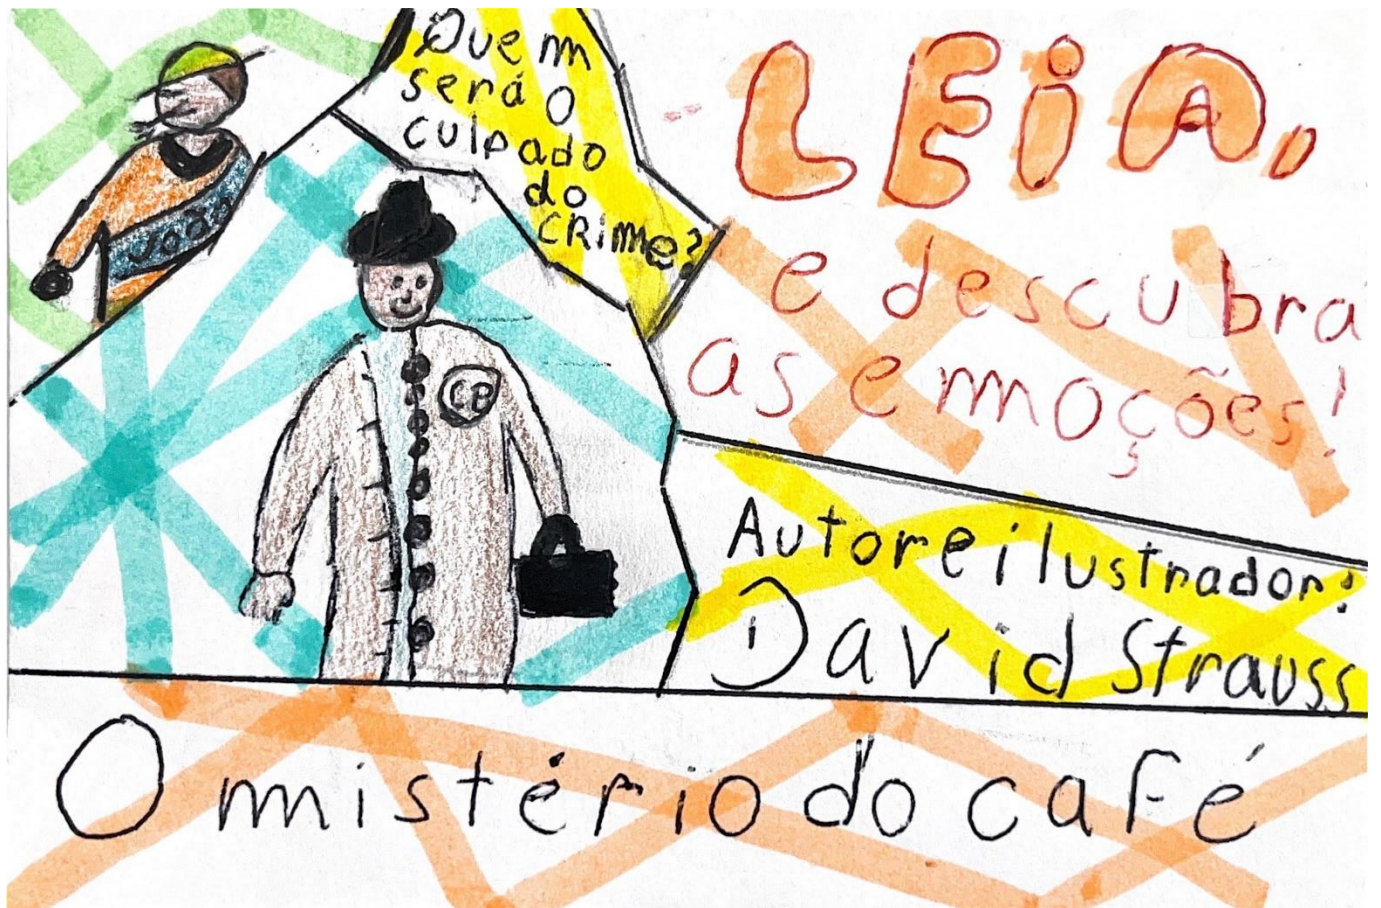 Quem
será o
culpado
do
crime?
LEIA,
e descubra
as emoções!
João
CP
Autor e ilustrador:
David Strauss
O mistério do café